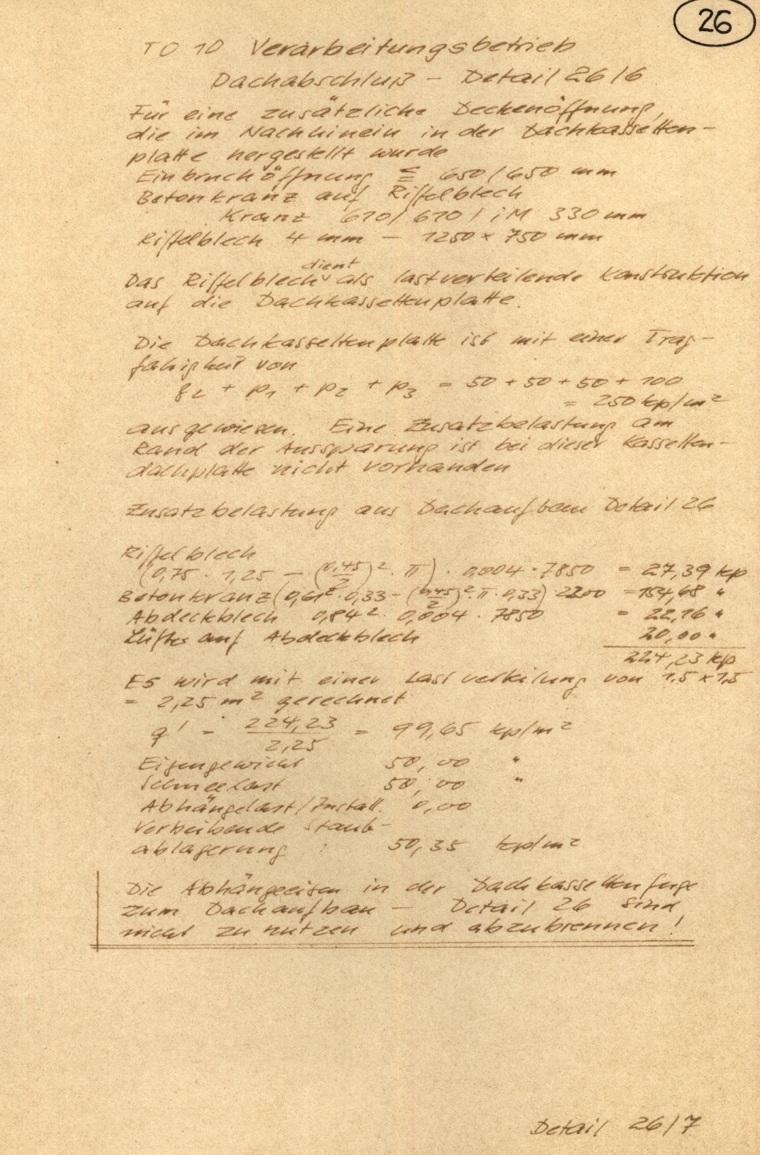 26
TO 10 Verarbeitungsbetrieb
Dachabschluß – Detail 26/6
Für eine zusätzliche Deckenöffnung,
die im Nachhinein in der Dachkassetten-
platte hergestellt wurde
Einbruchöffnung ≦ 650/650 mm
Betonkranz auf Riffelblech
Kranz 610/610/ iM 330 mm
Riffelblech 4 mm – 1250 x 750 mm
Das Riffelblech dient als lastverteilende Konstruktion
auf die Dachkassettenplatte.
Die Dachkassettenplatte ist mit einer Trag-
fähigkeit von
g2 + p1 + p2 + p3 = 50 + 50 + 50 + 100
= 250 kp/m²
ausgewiesen. Eine Zusatzbelastung am
Rand der Aussparung ist bei dieser Kassetten-
dachplatte nicht vorhanden
Zusatzbelastung aus Dachaufbau Detail 26
Riffelblech
(0,75 · 1,25 – (0,45/2)² · π) · 0,004 · 7850 = 27,39 kp
Betonkranz (0,61² · 0,33 – (0,45/2)² · π · 0,33) 2200 = 154,68 "
Abdeckblech 0,84² · 0,004 · 7850 = 22,16 "
Lüfter auf Abdeckblech 20,00 "
224,23 kp
Es wird mit einer Lastverteilung von 1,5 x 1,5
= 2,25 m² gerechnet
q' = 224,23 / 2,25 = 99,65 kp/m²
Eigengewicht 50,00 "
Schneelast 50,00 "
Abhängelast/Install. 0,00
Verbleibende Staub-
ablagerung : 50,35 kp/m²
Die Abhängeeisen in der Dachkassettenfuge
zum Dachaufbau – Detail 26 sind
nicht zu nutzen und abzubrennen!
Detail 26/7